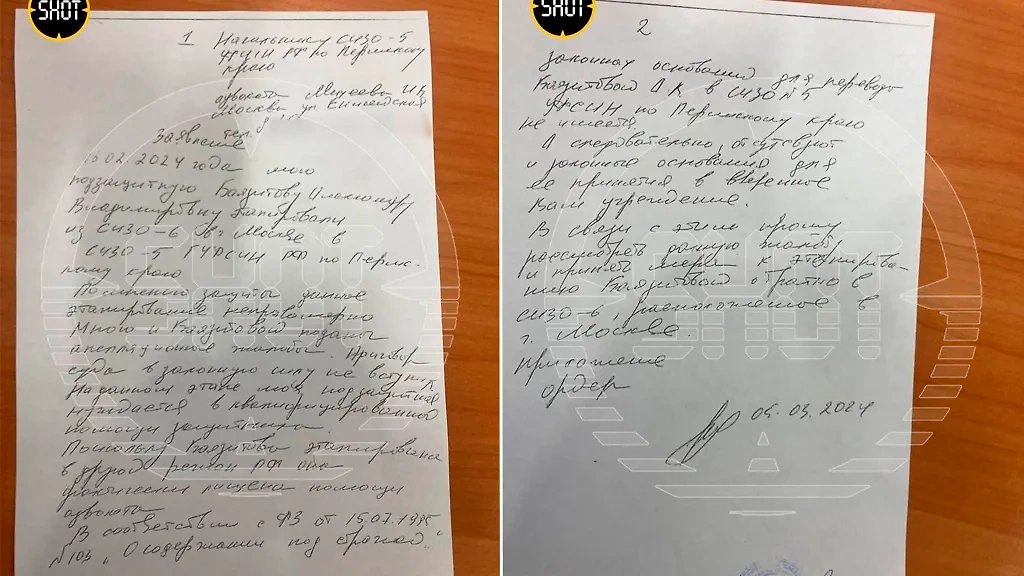 SHOT
1 Начальнику СИЗО-5
ФСИН РФ по Пермскому
краю
адвоката Михеевой
Москва ул Енисейская
Заявление
02.2024 года мою
подзащитную Баязитову Александру
Владимировну этапировали
из СИЗО-6 г. Москве в
СИЗО-5 ГУФСИН РФ по Перм-
скому краю
По мнению защиты данное
этапирование неправомерно
Мною и Баязитовой поданы
апелляционные жалобы. Приговор
суда в законную силу не вступил
На данном этапе моя подзащитная
нуждается в квалифицированной
помощи защитника.
Поскольку Баязитова этапирована
в другой регион РФ она
фактически лишена помощи
адвоката
В соответствии с ФЗ от 15.07.1995
№103 "О содержании под стражей"
SHOT
2
законных оснований для перевода
Баязитовой А.К в СИЗО №5
УФСИН по Пермскому краю
не имеется
А следовательно, отсутствуют
и законные основания для
ее принятия в вверенное
Вам учреждение.
В связи с этим прошу
рассмотреть данную жалобу
и принять меры к этапирова-
нию Баязитовой обратно в
СИЗО-6, расположенное в
г. Москве.
Приложение
ордер
05.03.2024